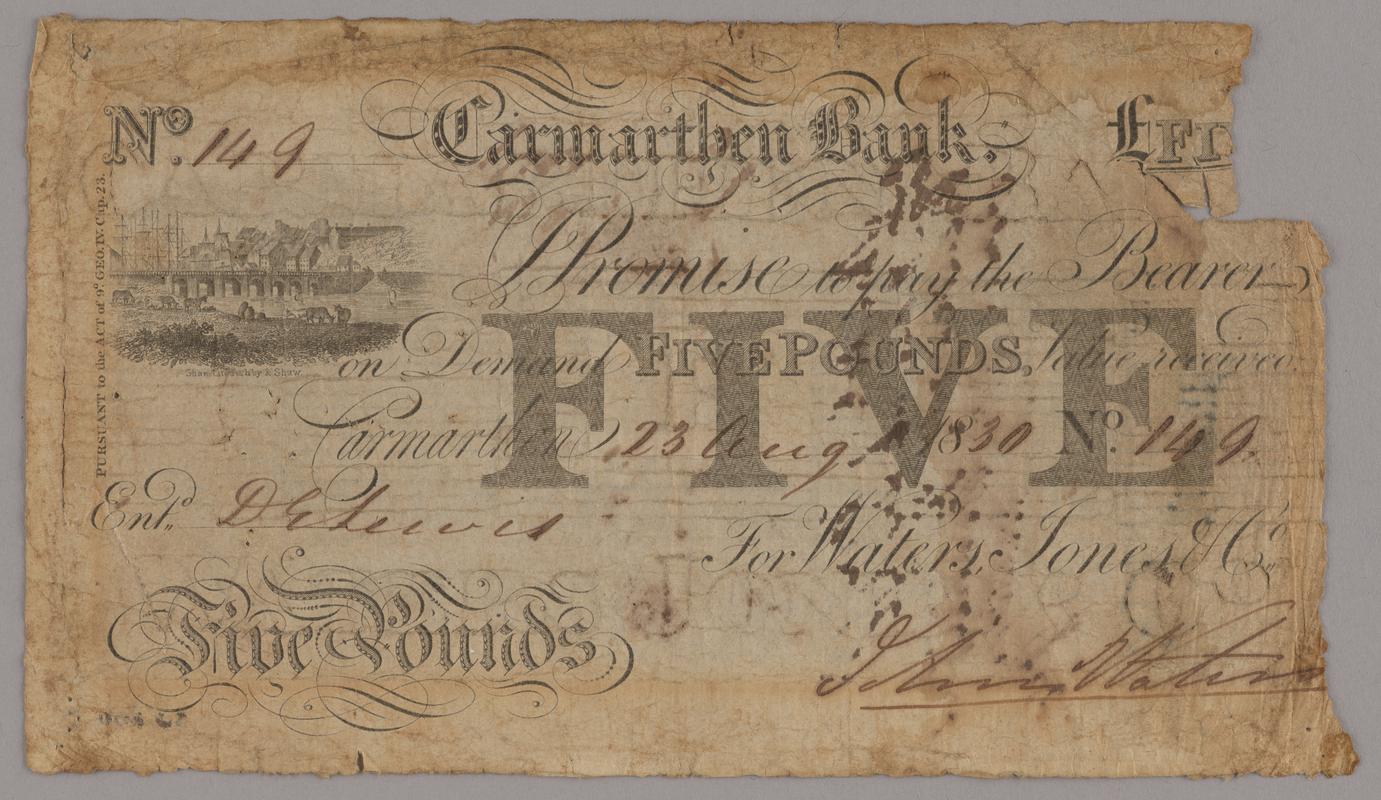 No. 149 Carmarthen Bank. £FI
PURSUANT to the ACT of 9º GEO. IV. Cap. 23.
I Promise to pay the Bearer
on Demand FIVE POUNDS, Value received.
FIVE
Carmarthen 23 Aug 1830 No. 149
Entd. D E Lewis
For Waters, Jones, & Co.
Five Pounds
John Waters